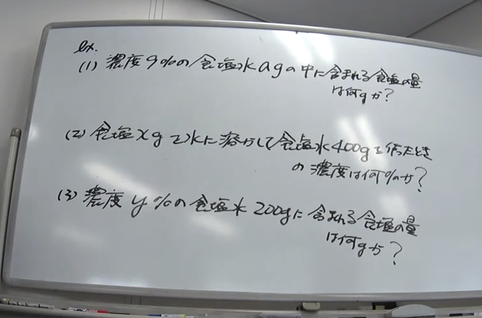 ex.
(1) 濃度9%の食塩水agの中に含まれる食塩の量
は何gか?
(2) 食塩xgを水に溶かして食塩水400gを作ったとき
の濃度は何%か?
(3) 濃度y%の食塩水200gに含まれる食塩の量
は何gか?